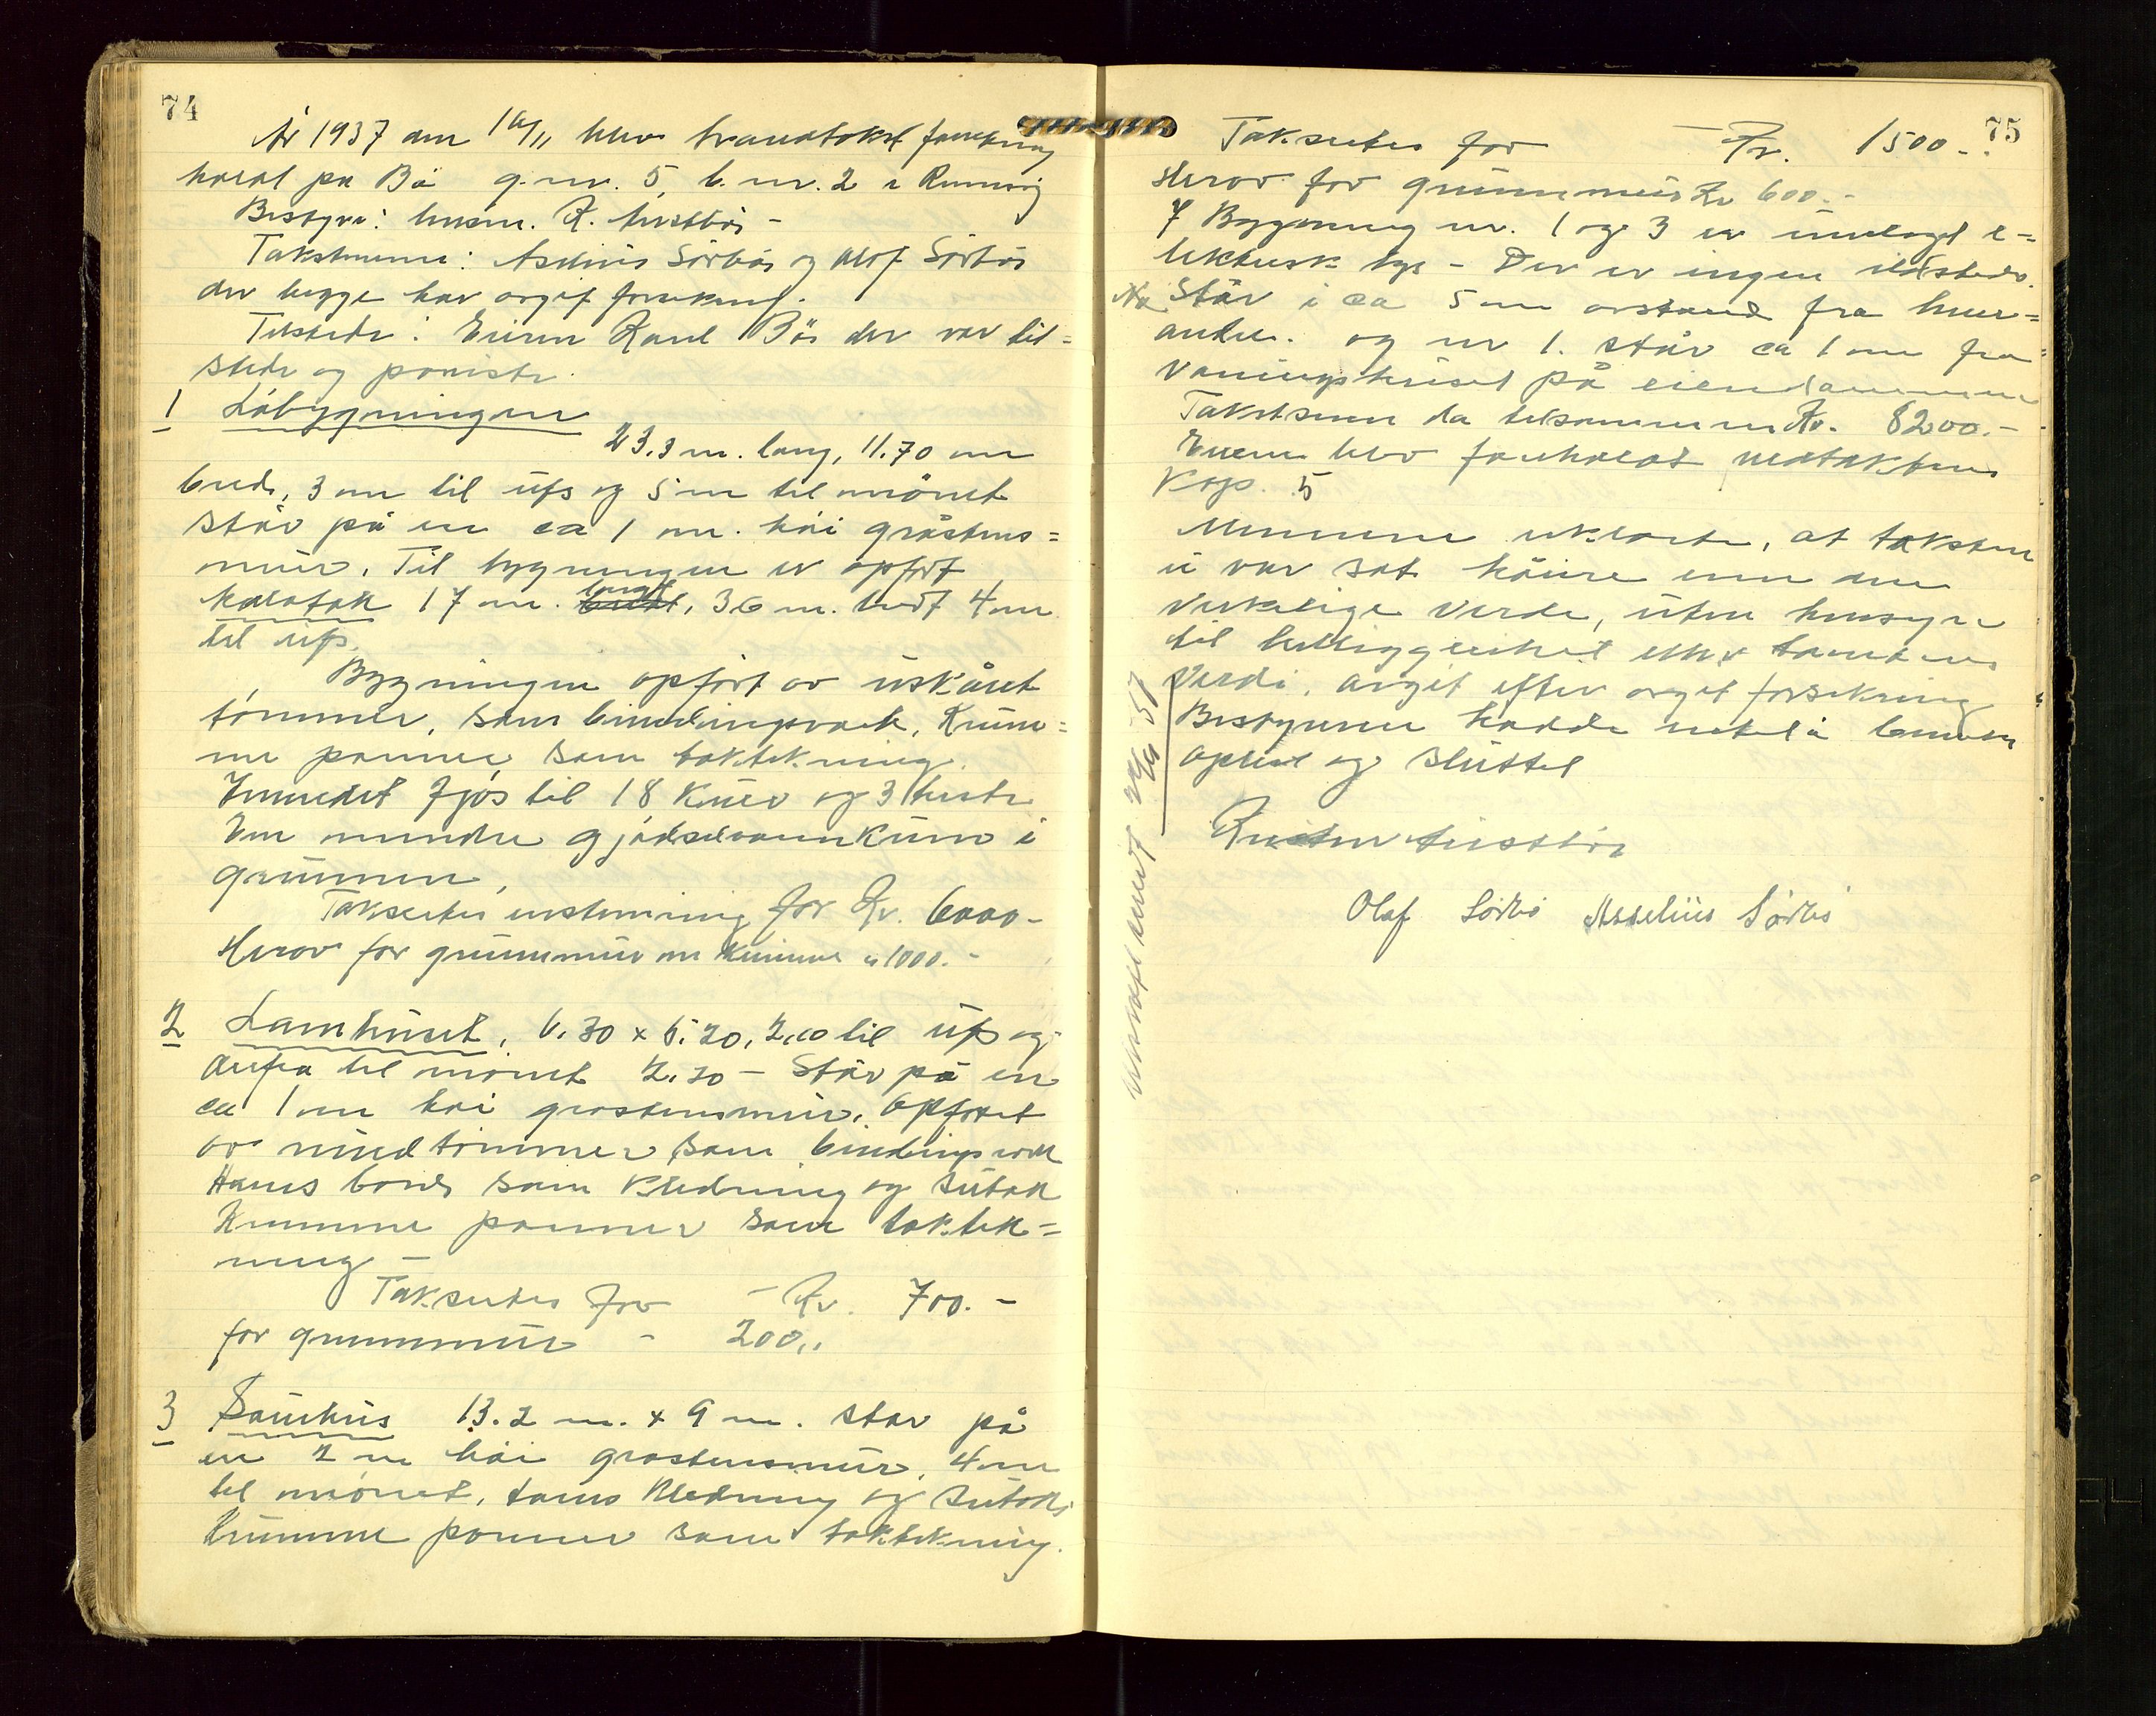 74
År 1937 den 10/11 blev branntakst forretning
holdt på Bø g.nr. 5, b.nr. 2 i
Bestyrer: lensm. R. Austbø -
Takstmenn: Asselius Sörbø og Olaf Sörbø
der begge har avgit forsikring.
Tilstede: Eieren Karl Bø der var til=
stede og påviste.
1 Løbygningen
23.3 m. lang, 11.70 m
bred, 3 m til ufs og 5 m til mönet
står på en ca 1 m. høi gråstens=
mur. Til bygningen er opført
halvtak 17 m. langt, 3.6 m. bredt 4 m
til ufs.
Bygningen opført av uskåret
tømmer, som bindingsverk, Krum=
me panner som taktekning.
Innredet Fjøs til 18 Kuer og 3 heste
En mindre gjødselvannkum i
grunnen,
Takseres enstemmig for Kr. 6000-
Herav for grunnmur m Kummer " 1000.-
2 Lamhuset, 6.30 x 5.20, 2.00 til ufs og
derfra til mønet 2.20 - Står på en
ca 1 m høi gråstensmur. Opført
av rundtømmer som bindingsverk
Hauns bord som Kledning og sutak
Krumme panner som taktek=
ning -
Takseres for - Kr. 700.-
for grunnmur - 200,,
3 Sauehus 13.2 m. x 9 m. står på
en 2 m høi gråstensmur. 4 m
til mønet, Kledning og sutak
Krumme panner som taktekning.
75
Takseres for - Kr. 1500.-
Herav for grunnmur Kr 600.-
I Bygning nr. 1 og 3 er innlagt e=
lektrisk lys - Der er ingen ildsteder.
No står i ca 5 m avstand fra hver=
andre. og nr 1. står ca 1 m fra
Våningshuset på eiendommen
Takstsum da tilsammen Kr. 8200.-
Eieren blev foreholdt vedtektenes
Kap. 5
Mennene erklærte, at taksten
ei var sat høiere enn den
virkelige verdi, uten hensyn
til beliggenhet eller tomtens
verdi, avgit efter avgit forsikring
Bestyreren hadde intet å bemerke
oplest og sluttet
Austbø
Olaf Sörbø Asselius Sörbø